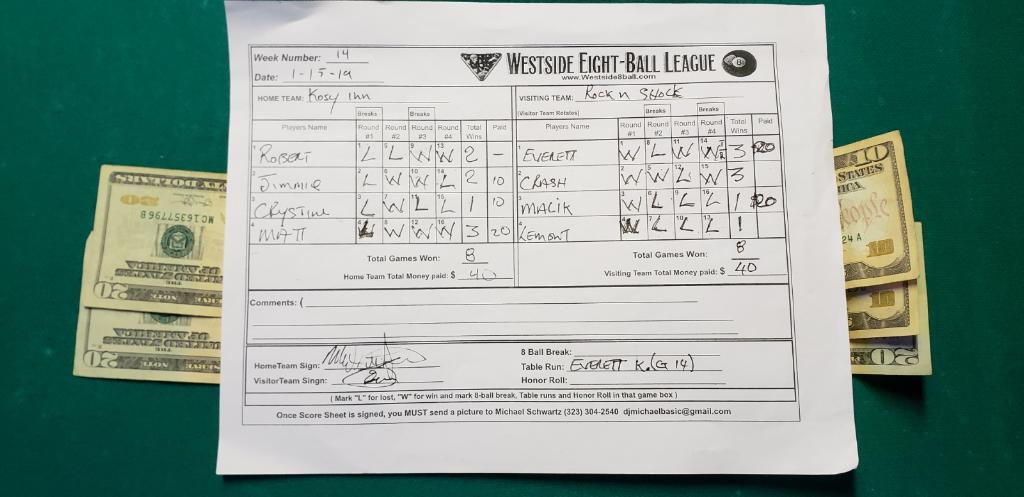 Week Number: 14
Date: 1-15-19
WESTSIDE EIGHT-BALL LEAGUE
www.Westside8ball.com
8
HOME TEAM: Kosy Inn
VISITING TEAM: Rock n Shock
(Visitor Team Rotates)
Breaks Breaks Breaks Breaks
Players Name Round #1 Round #2 Round #3 Round #4 Total Wins Paid
Players Name Round #1 Round #2 Round #3 Round #4 Total Wins Paid
1 ROBERT 1 L 5 L 9 W 13 W 2 -
1 EVERETT 1 W 8 L 11 W 14 W 3 $20
2 Jimmie 2 L 6 W 10 W 14 L 2 10
2 CRASH 2 W 5 W 12 L 15 W 3
3 CRYSTINE 3 L 7 W 11 L 15 L 1 10
3 MALIK 3 W 6 L 9 L 16 L 1 $20
4 MATT 4 L 8 W 12 W 16 W 3 20
4 LEMONT 4 W 7 L 10 L 13 L 1
Total Games Won: 8
Home Team Total Money paid: $ 40
Total Games Won: 8
Visiting Team Total Money paid: $ 40
Comments: (
HomeTeam Sign:
VisitorTeam Singn:
8 Ball Break:
Table Run: EVERETT K. (G 14)
Honor Roll:
( Mark "L" for lost, "W" for win and mark 8-ball break, Table runs and Honor Roll in that game box )
Once Score Sheet is signed, you MUST send a picture to Michael Schwartz (323) 304-2540 djmichaelbasic@gmail.com
MC16357796B
20
20
20
10
STATES
10
10
20